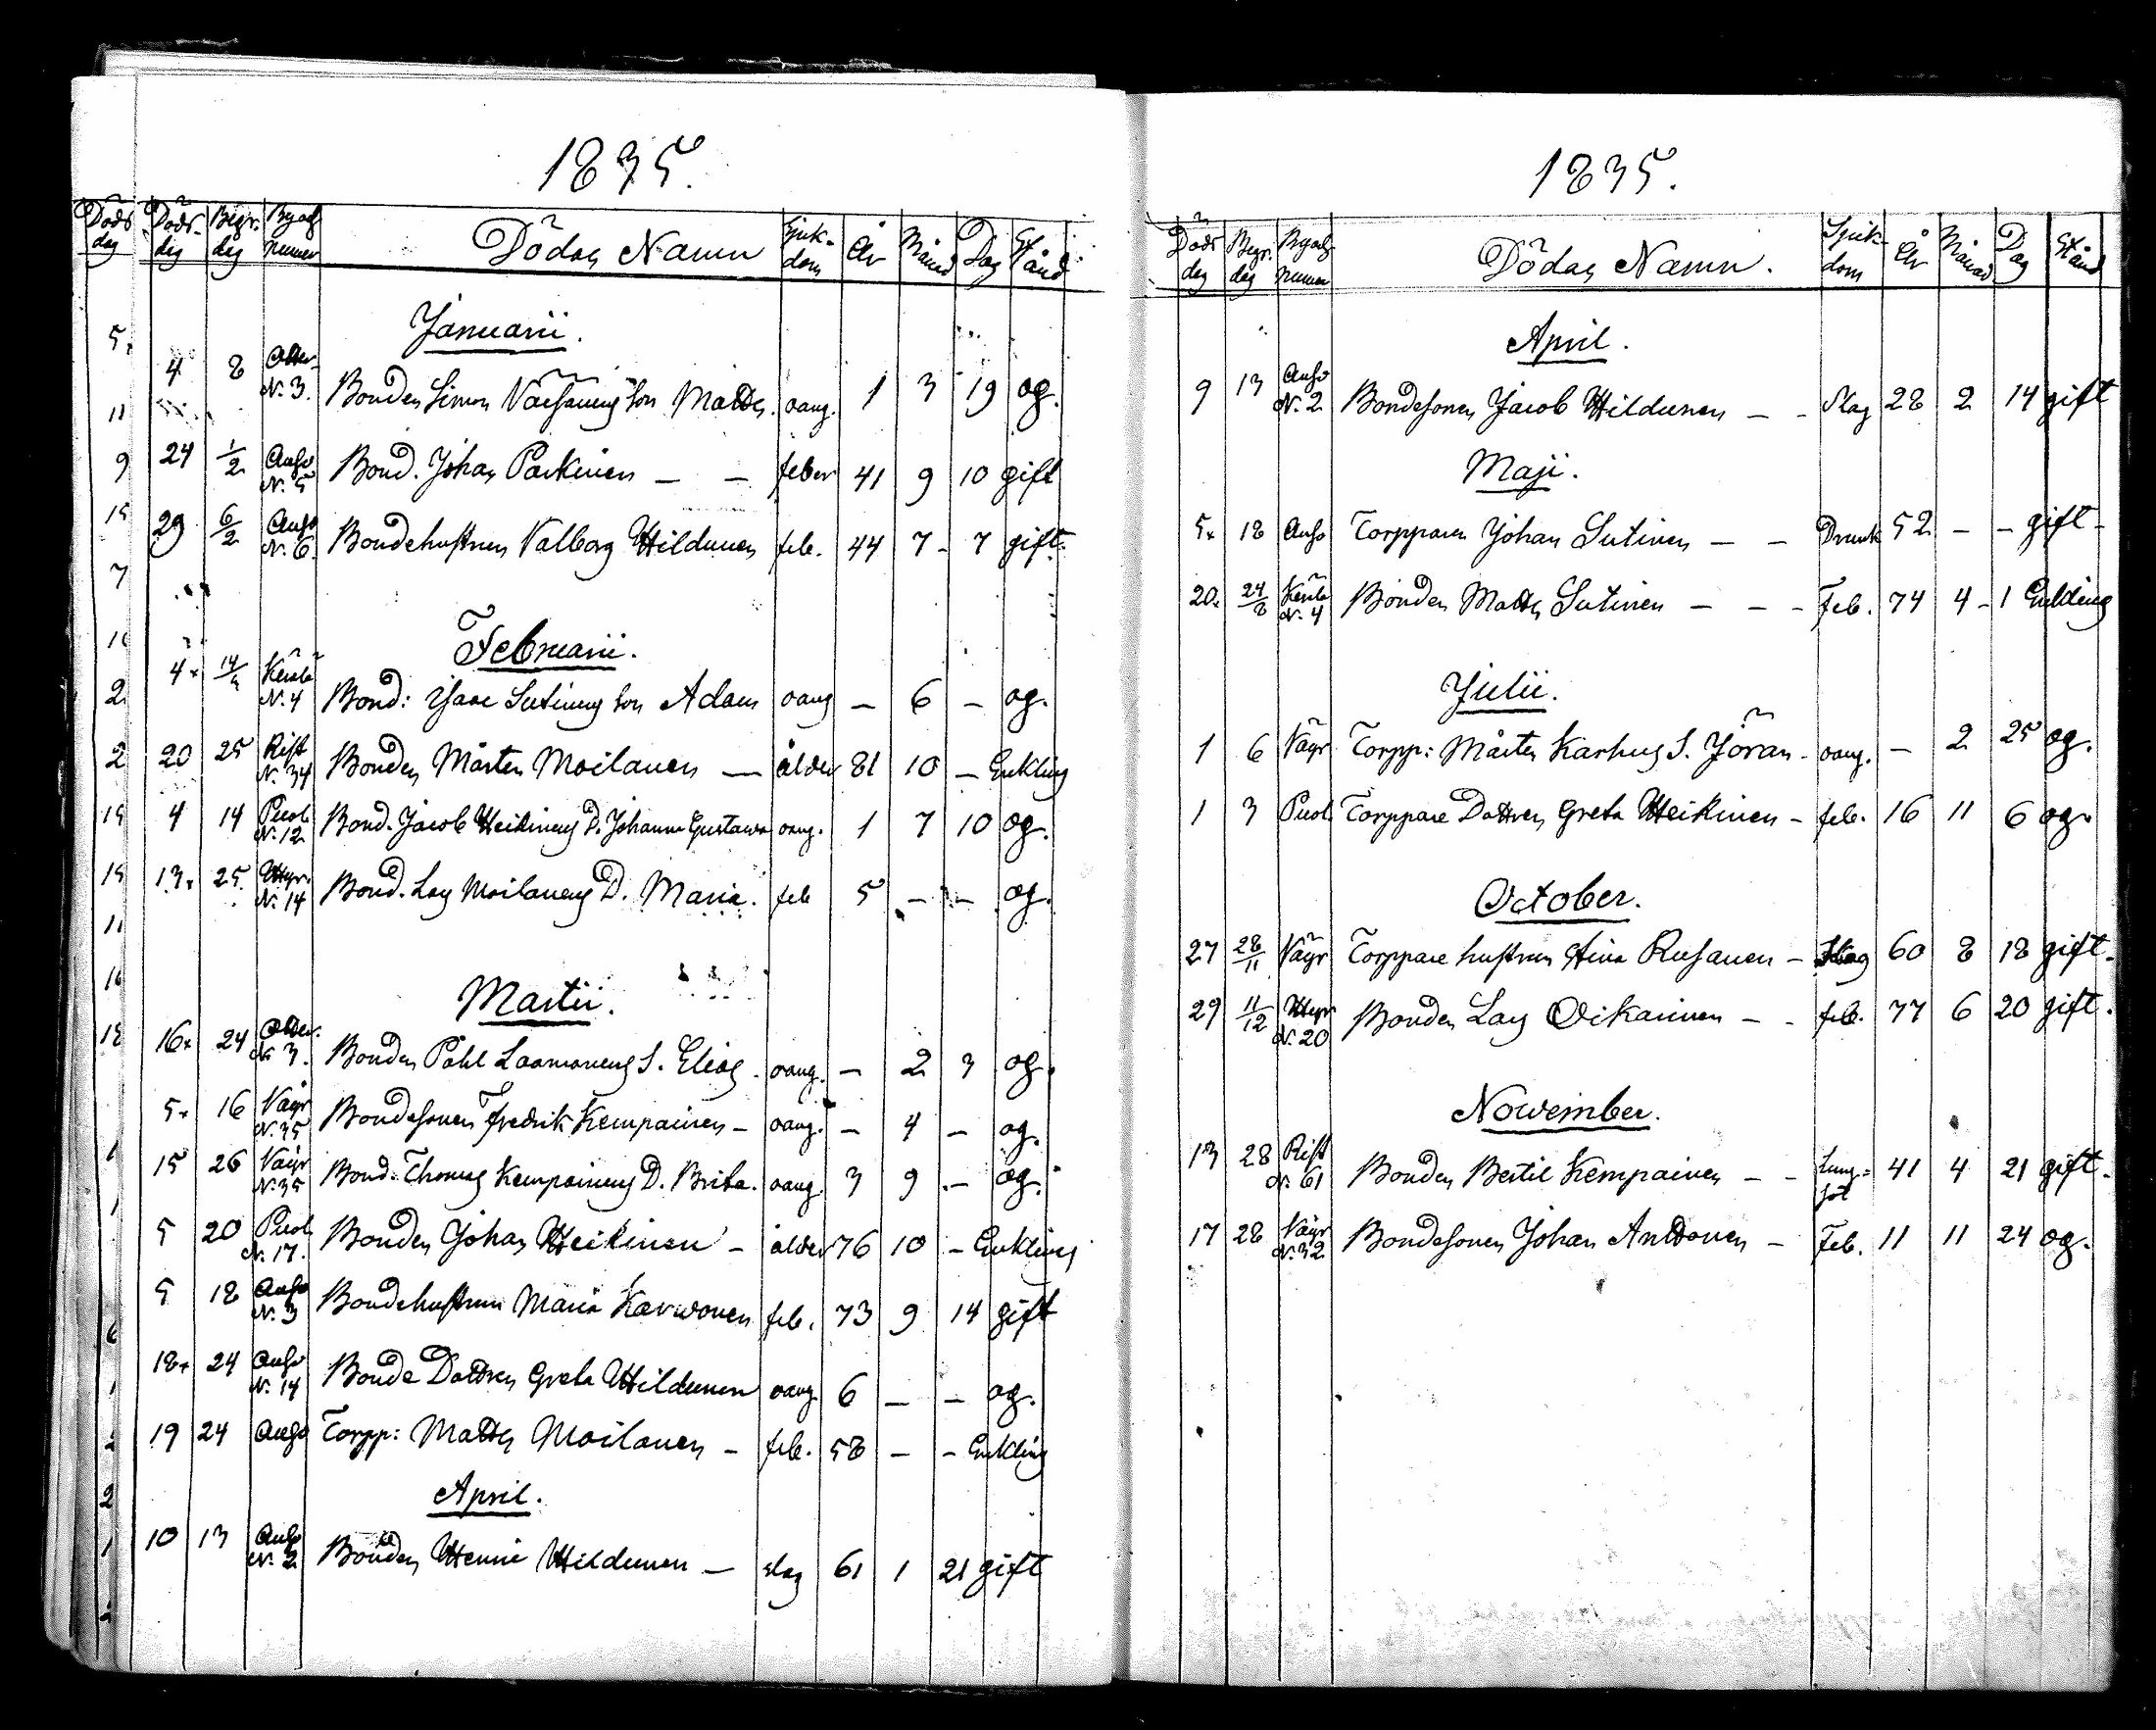 1835.
Döds dag Döds- dag Begr. dag Byars numer Dödas Namn Sjuk- dom År Månad Dag Stånd
5.
Januarii.
4 8 N. 3. Bonden Simon Väisänens son Matts. oang. 1 3 19 og.
11
9 24 1/2 Anso N. 5 Bond. Johan Parkinen — — feber 41 9 10 gift
15 29 6/2 Anso N. 6 Bondehustrun Valborg Hildunen feb. 44 7 - 7 gift.
7
Februarii.
4 Keiala N. 4 Bond: Isaac Sutinens son Adam oang — 6 — og.
2
2 20 25 Rist N. 34 Bonden Mårten Moilanen — ålder 81 10 — Enkling
15 4 14 Puol N. 12 Bond. Jacob Heikinens D. Johanna Gustawa oang. 1 7 10 og.
15 13. 25. Hyr. N. 14 Bond. Lars Moilanens D. Maria. feb 5 — — og.
11
16
Martii.
18 16. 24 N. 3. Bonden Påhl Laamanens S. Elias. oang. — 2 3 og.
5. 16 Väyr N. 35 Bondesonen Fredrik Kempainen — oang. — 4 — og.
1 15 26 Väyr N. 35 Bond. Thomas Kempainens D. Brita. oang. 3 9 — og.
1
5 20 Puol N. 17. Bonden Johan Heikinen — ålder 76 10 — Enkling
5 18 Anso N. 3 Bondehustrun Maria Karwonen feb. 73 9 14 gift
6
18. 24 Anso N. 14 Bonde Dottren Greta Hildunen oang 6 — — og.
1
2 19 24 Anso Torpp: Matts Moilanen — feb. 58 — — Enkling
2
April.
1 10 13 Anso N. 2 Bonden Henric Hildunen — slag 61 1 21 gift
1835.
Döds dag Begr. dag Byars numer Dödas Namn. Sjuk- dom År Månad Dag Stånd
April.
9 13 Anso N. 2 Bondesonen Jacob Hildunen — - Slag 28 2 14 gift
Maji.
5. 18 Anso Torpparen Johan Sutinen — — Drunk 52 — — gift -
20. 24/8 Keiala N. 4 Bonden Matts Sutinen — — - Feb. 74 4 - 1 Enkling
Julii.
1 6 Väyr Torpp: Mårten Karhus S. Jöran - oang. — 2 25 og.
1 3 Puol Torppare Dottren Greta Heikinen - feb. 16 11 6 og.
October.
27 28/11 Väyr Torppare hustrun Rusanen - Slag 60 8 18 gift.
29 11/12 Hyr N. 20 Bonden Lars Oikarinen — - feb. 77 6 20 gift.
Nowember.
13 28 Rist N. 61 Bonden Bertil Kempainen — - Lung= sot 41 4 21 gift.
17 28 Väyr N. 32 Bondesonen Johan Anttonen — Feb. 11 11 24 og.